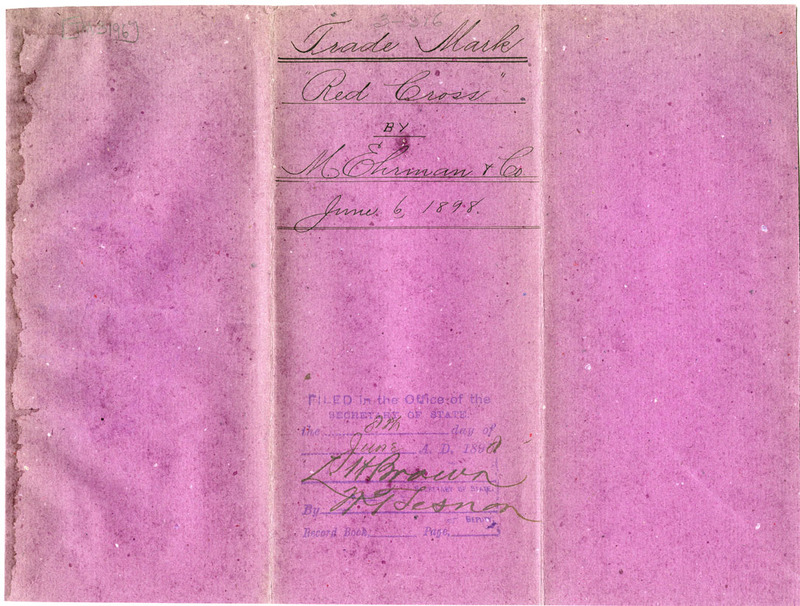 Trade Mark
"Red Cross"
BY
M. Ehrman & Co
June 6, 1898.
FILED in the Office of the
SECRETARY OF STATE
the 8th day of
June A. D. 1898
L. H. Brown
SECRETARY OF STATE.
By
Deputy
Record Book Page